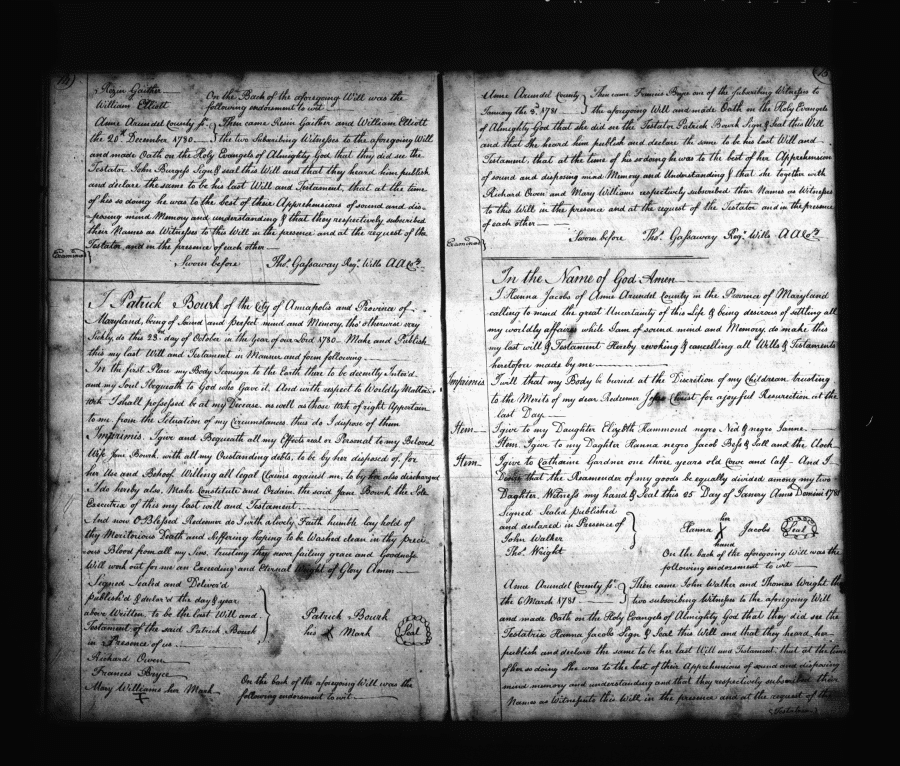 Rezin Gaither
William Elliott
On the Back of the aforegoing Will was the
following endorsment to wit
Anne Arundel County ss. Then came Resin Gaither and William Elliott
the 20th December 1780 the two Subscribing Witnesses to the aforegoing Will
and made Oath on the Holy Evangels of Almighty God that they did see the
Testator John Burgess Sign & seal this Will and that they heard him publish
and declare the same to be his last Will and Testament, that at the time
of his so doing he was to the best of their Apprehensions of sound and dis=
posing mind Memory and understanding & that they respectively subscribed
their Names as Witnesses to this Will in the presence and at the request of the
Testator, and in the presence of each other
Examined
Sworn before Thos. Gassaway Regr. Wills A A Coty.
I Patrick Bourk of the City of Annapolis and Province of
Maryland, being of Sound and perfect mind and Memory, tho' otherwise very
Sickly do this 23rd day of October in the Year of our Lord 1780. Make and Publish
this my last Will and Testament in Manner and form following
In the first Place my Body I consign to the Earth there to be decently Inter'd
and my Soul I bequeath to God who Gave it. And with respect to Worldly Matters
wch I shall possessed be at my Decease, as well as those wch of right Appertain
to me from the Situation of my Circumstances thus do I dispose of them
Imprimis. I give and Bequeath all my Effects real or Personal to my Beloved
Wife Jane Bourk, with all my Outstanding debts, to be by her disposed of, for
her Use and Behoof. Willing all legal Claims against me, to by her also discharged
I do hereby also, Make Constitute and Ordain the said Jane Bourk the Sole
Executrix of this my last will and Testament
And now O Blessed Redeemer do I with a lively Faith humble lay hold of
thy Meritorious Death and Suffering hoping to be Washed clean in thy preci=
ous Blood from all my Sins, trusting thy never failing grace and Goodness
Will work out for me an Exceeding and Eternal Weight of Glory Amen
Signed Sealed and Deliver'd
publish'd & declar'd the day & year
above Written to be the last Will and
Testament of the said Patrick Bourk
in Presence of us
Patrick Bourk
his X Mark
Seal
Richard Owen
Frances Bryce
Mary Williams her Mark
On the back of the aforegoing Will was the
following endorsment to wit
Anne Arundel County Then came Frances Bryce one of the Subscribing Witnesses to
January the 3d 1781 the aforegoing Will and made Oath on the Holy Evangels
of Almighty God that she did see the Testator Patrick Bourk Sign & Seal this Will
and that she heard him publish and declare the same to be his last Will and
Testament, that at the time of his so doing he was to the best of her Apprehension
of sound and disposing mind Memory and Understanding & that she together with
Richard Owen and Mary Williams respectively subscribed their Names as Witnesses
to this Will in the presence and at the request of the Testator and in the presence
of each other
Examined
Sworn before Thos. Gassaway Regr. Wills A A Coty.
In the Name of God Amen
I Hanna Jacobs of Anne Arundel County in the Province of Maryland
calling to mind the great Uncertainty of this Life & being desirous of settling all
my worldly affaires while I am of sound mind and Memory, do make this
my last will & Testament Hereby revoking & cancelling all Wills & Testaments
heretofore made by me
Imprimis I will that my Body be buried at the Discretion of my Childrean trusting
to the Merits of my dear Redeemer Jesus Christ for a joyfed Resurection at the
last Day
Item I give to my Daughter Elizabth Hammond negro Ned & negro Janne
Item I give to my Daghter Hanna negro Jacob Bess & Sall and the Clock
Item I give to Catharine Gardner one three years old Cowe and Calf. And I
Desire that the Reamender of my goods be equally divided among my two
Daghter. Witness my hand & Seal this 25 Day of Janery Anno Domini 1781
Signed Sealed published
and declared in Presence of
John Walker
Thos. Wright
her
Hanna X Jacobs
hand
Seal
On the back of the aforegoing Will was the
following endorsement to wit
Anne Arundel County ss. Then came John Walker and Thomas Wright the
the 6 March 1781 two subscribing Witnesses to the aforegoing Will
and made Oath on the Holy Evangels of Almighty God that they did see the
Testatrix Hanna Jacobs Sign & Seal this Will and that they heard her
publish and declare the same to be her last Will and Testament, that at the time
of her so doing She was to the best of their Apprehensions of sound and disposing
mind memory and understanding and that they respectively subscribed their
Names as Witnesses to this Will in the presence and at the request of the
(Testatrix)